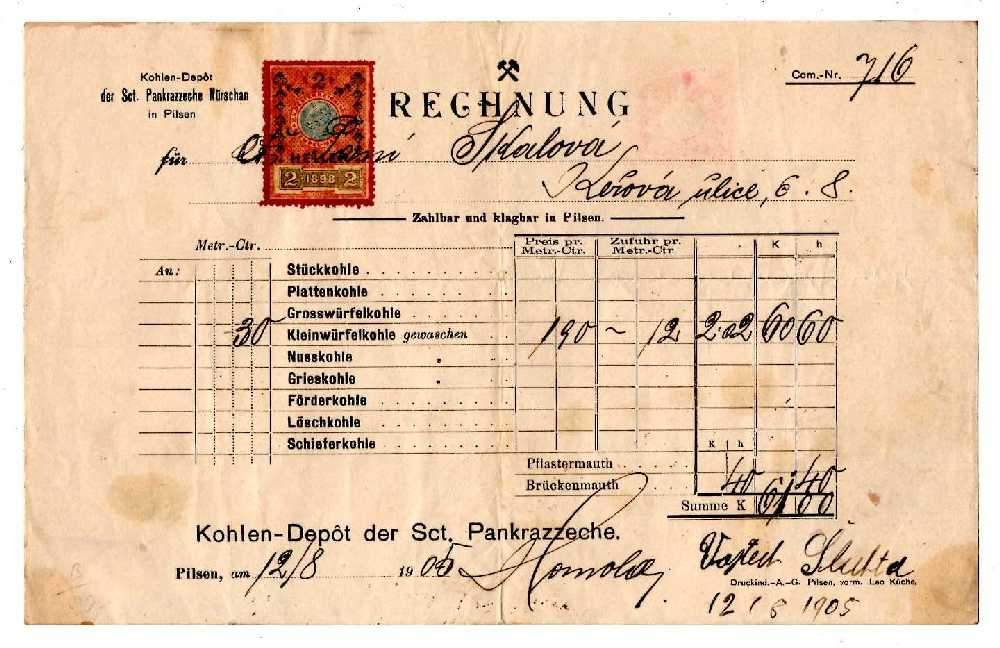 Kohlen-Depôt
der Sct. Pankrazzeche Nürschan
in Pilsen
2
2 1898 2
RECHNUNG
Com.-Nr. 716
für Skalová
ulice, č. 8.
Zahlbar und klagbar in Pilsen.
Metr.-Ctr. Preis pr. Metr.-Ctr. Zufuhr pr. Metr.-Ctr. K h
An: Stückkohle
Plattenkohle
Grosswürfelkohle
30 Kleinwürfelkohle gewaschen 190 ~ 12 2.02 60 60
Nusskohle "
Grieskohle "
Förderkohle
Löschkohle
Schieferkohle K h
Pflastermauth
Brückenmauth 40 40
Summe K 61 00
Kohlen-Depôt der Sct. Pankrazzeche.
Pilsen, am 12/8 1905 Homola
Druckind.-A.-G. Pilsen, vorm. Leo Küche.
12/8 1905